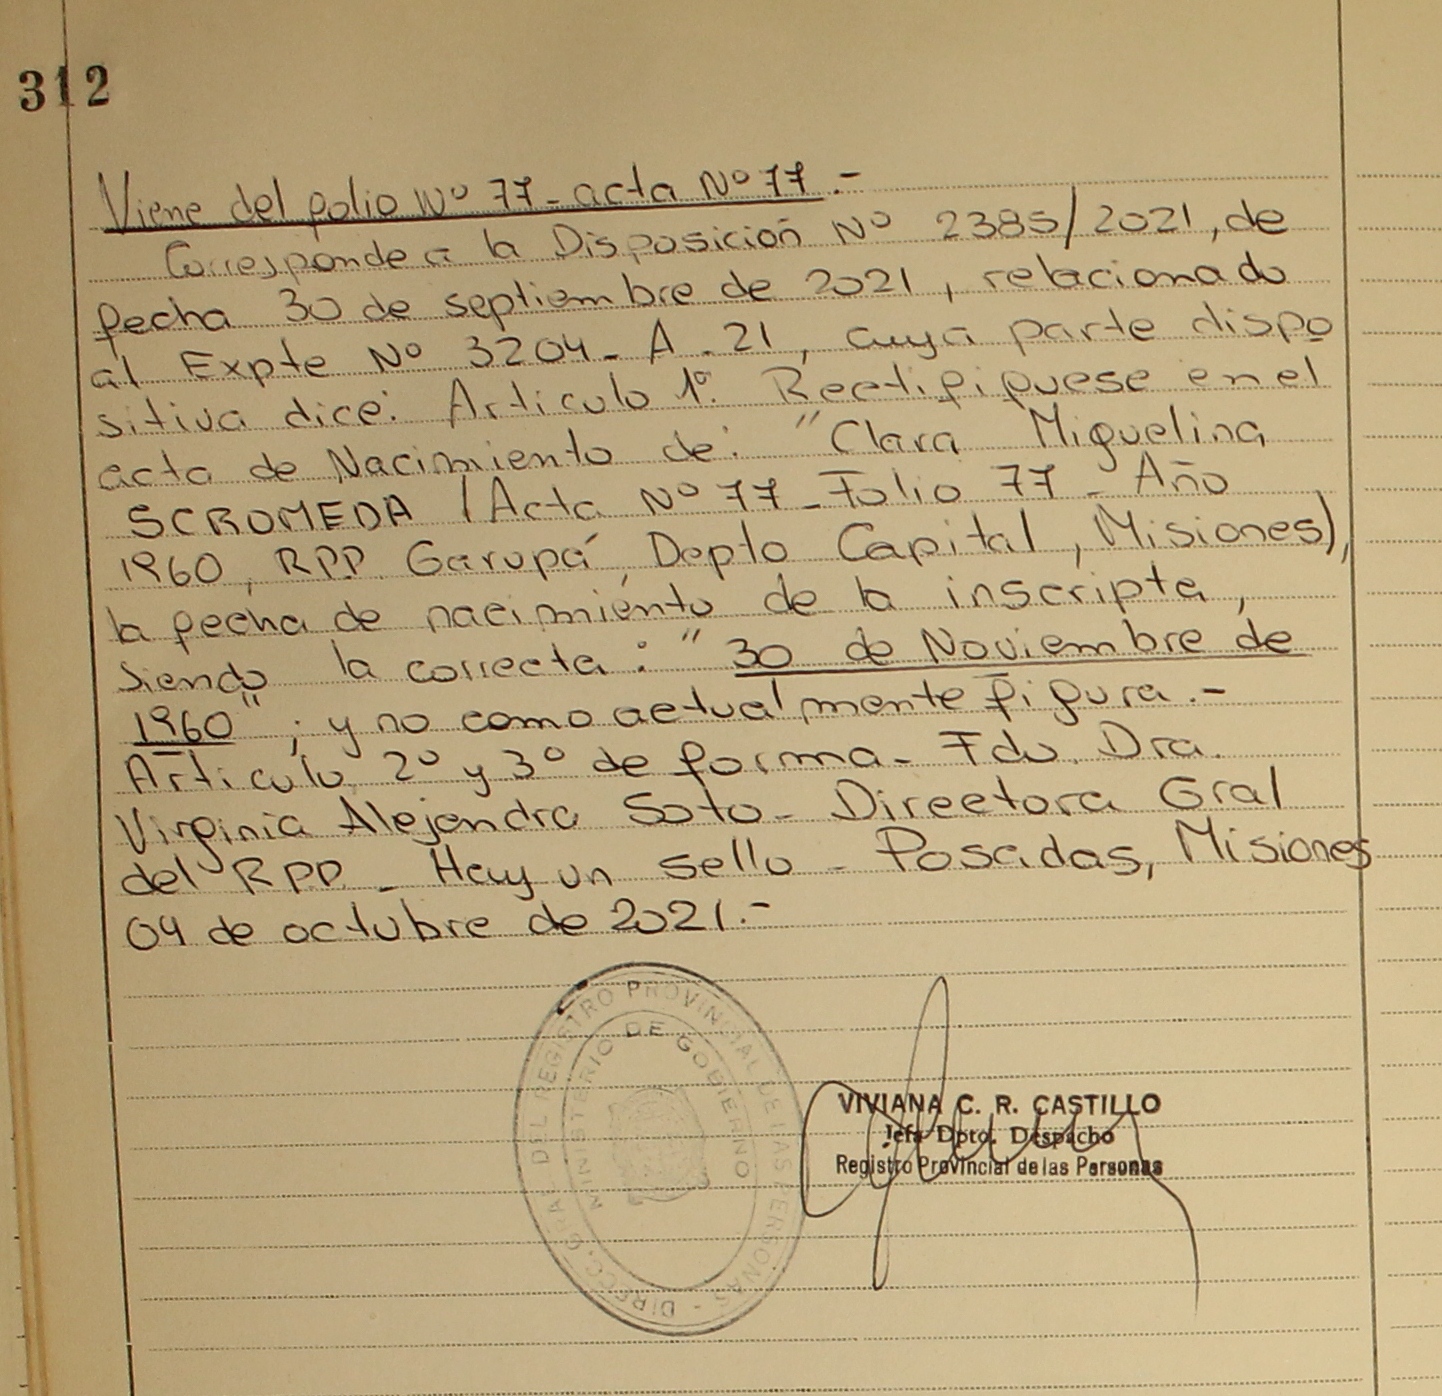 312
Viene del folio Nº 77 - acta Nº 77.-
Corresponde a la Disposición Nº 2385/2021, de
fecha 30 de septiembre de 2021, relacionado
al Expte Nº 3204 - A - 21, cuya parte dispo
sitiva dice: Artículo 1º: Rectifíquese en el
acta de Nacimiento de: "Clara Miguelina
SCROMEDA (Acta Nº 77 - Folio 77 - Año
1960, RPP. Garupá, Depto Capital, Misiones),
la fecha de nacimiento de la inscripta,
siendo la correcta: "30 de Noviembre de
1960"; y no como actualmente figura.-
Artículo 2º y 3º de forma - Fdo. Dra.
Virginia Alejandra Soto - Directora Gral
del RPP. - Hay un sello - Posadas, Misiones
04 de octubre de 2021.-
DIRECC. GRAL. DEL REGISTRO PROVINCIAL DE LAS PERSONAS -
MINISTERIO DE GOBIERNO
VIVIANA C. R. CASTILLO
Jefa Dpto. Despacho
Registro Provincial de las Personas